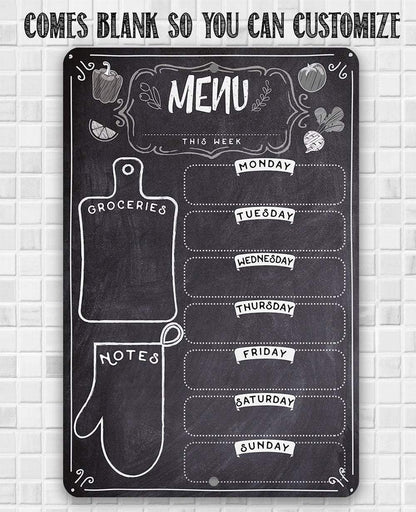 COMES BLANK SO YOU CAN CUSTOMIZE
MENU
THIS WEEK
GROCERIES
NOTES
MONDAY
TUESDAY
WEDNESDAY
THURSDAY
FRIDAY
SATURDAY
SUNDAY